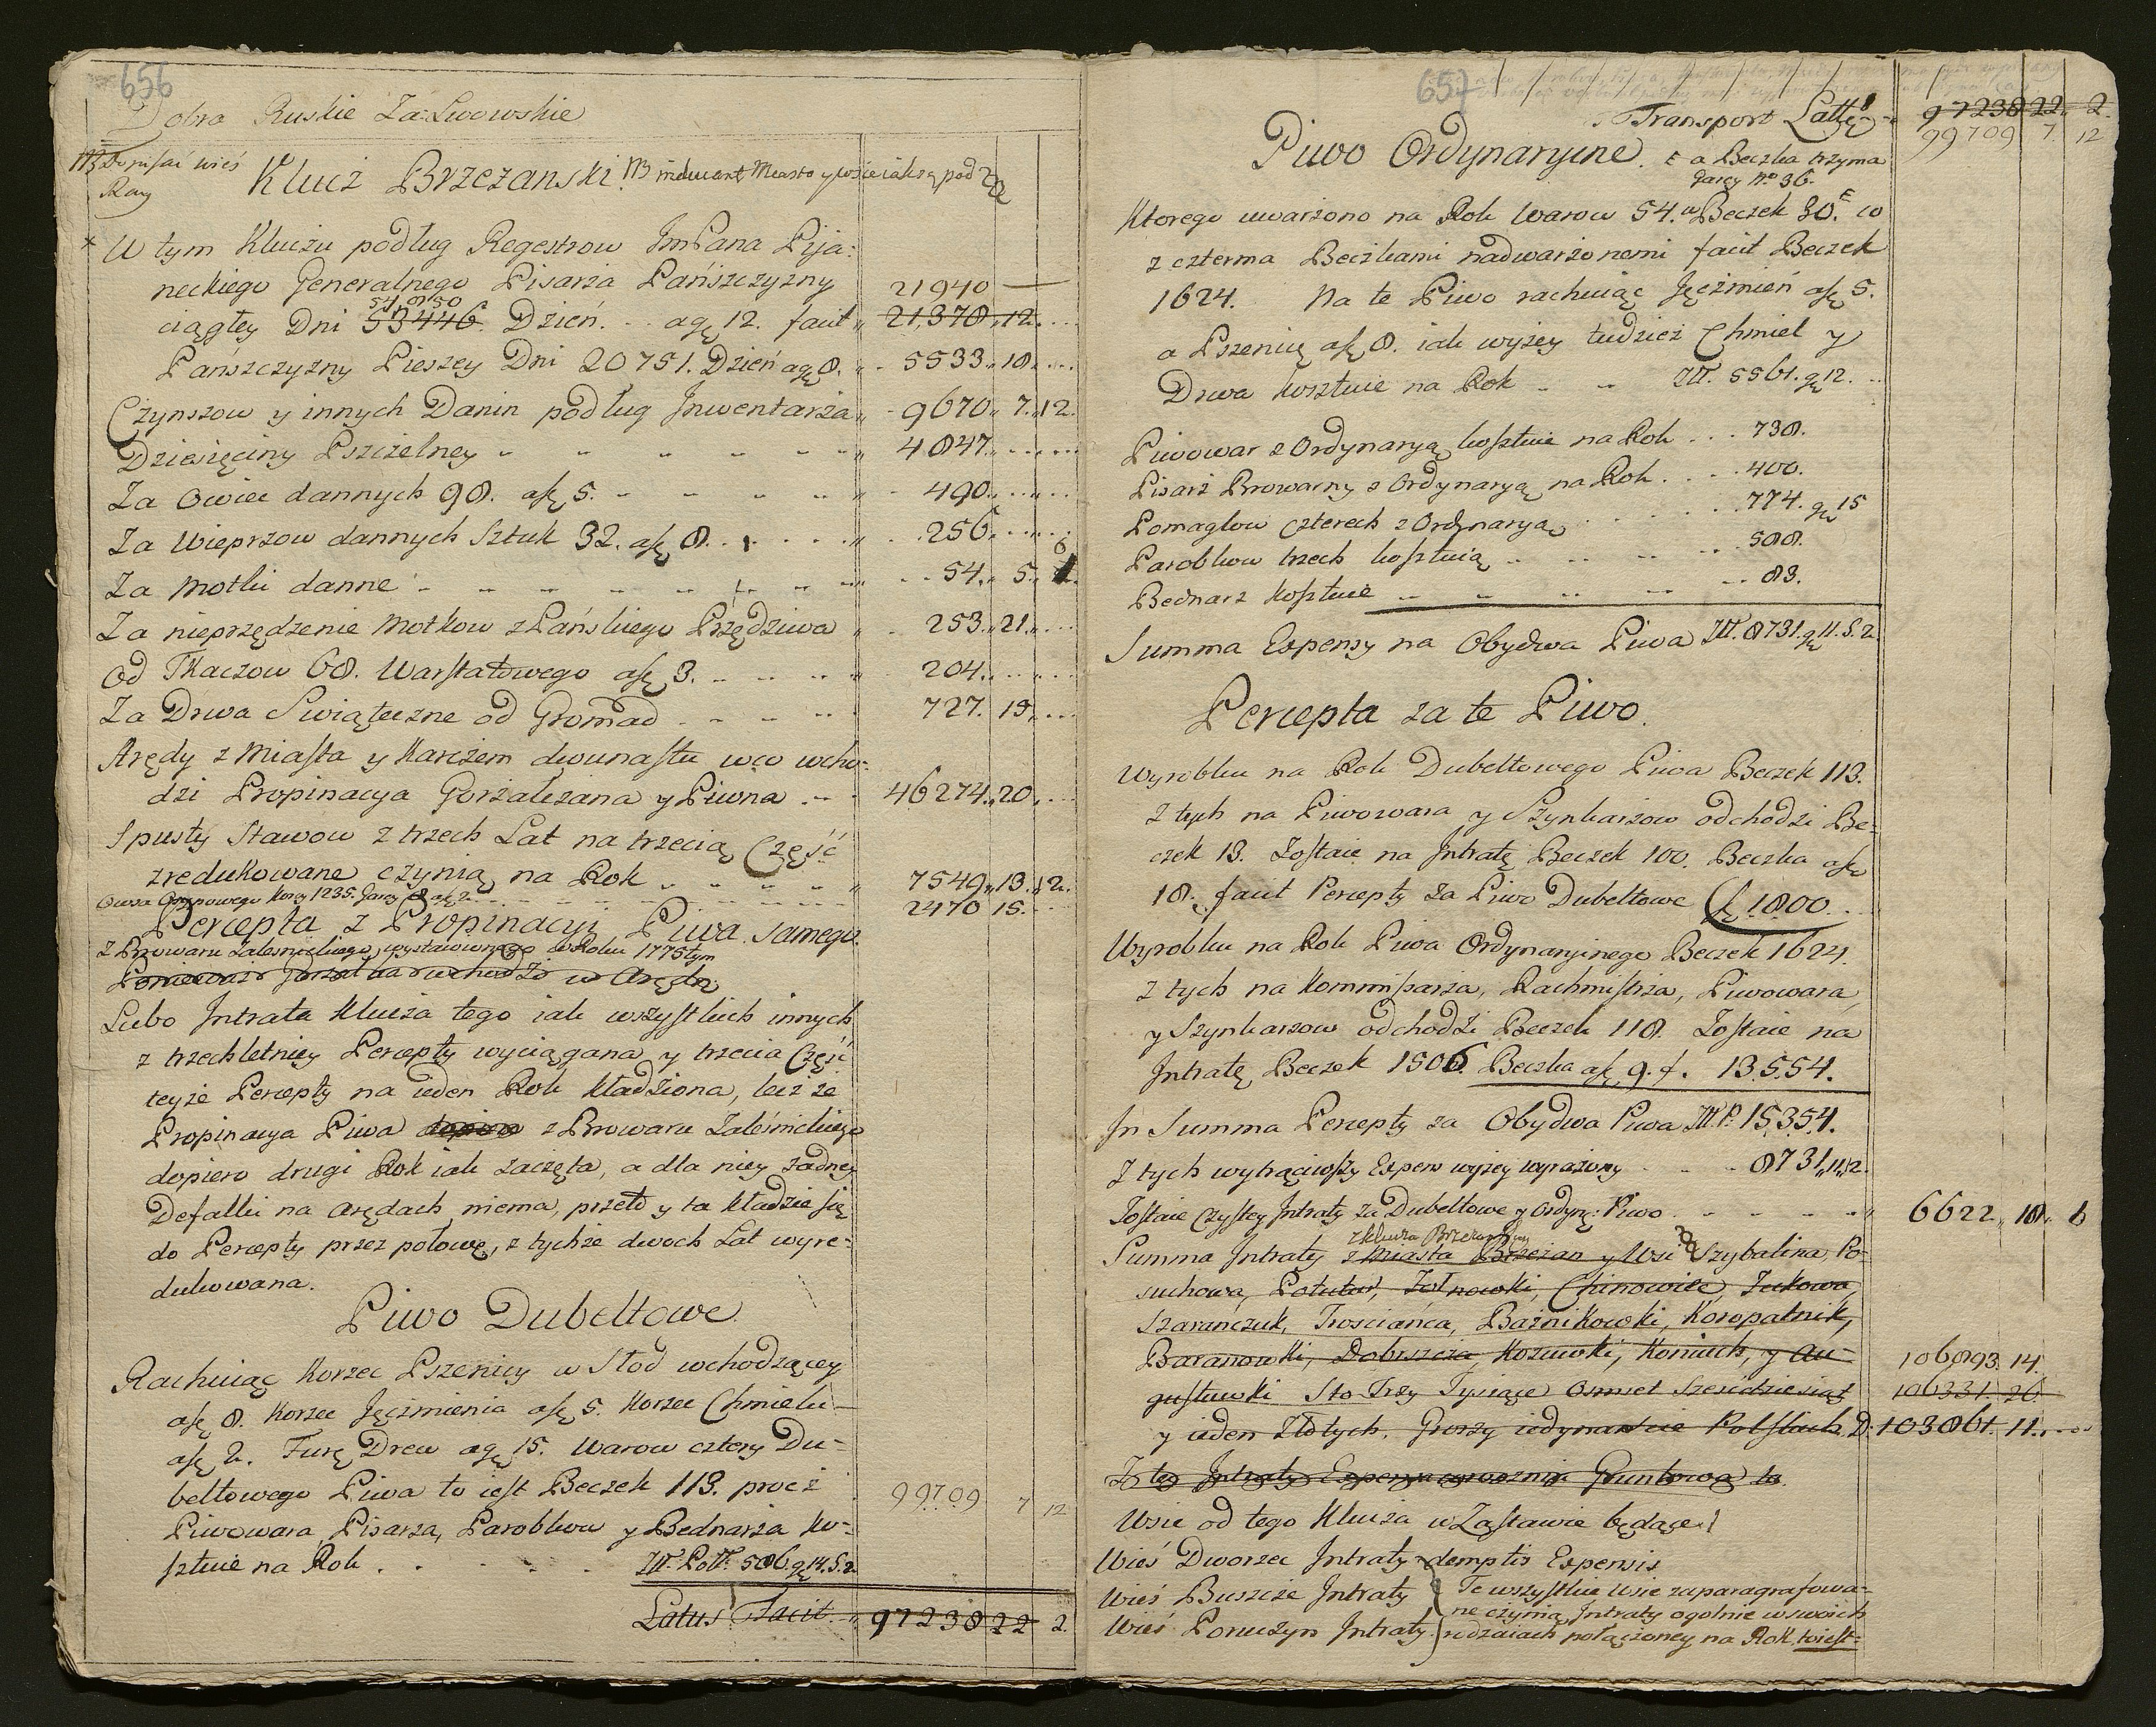 656
Dobra Ruskie Za:Lwowskie
NB Dopisać wieś
Ray
Klucz Brzezanski. NB
* W tym Kluczu podług Regestrow ImPana Pija:
neckiego Generalnego Pisarza Pańszczyzny 21940 —
54,850
ciągłey Dni 53446. Dzień. .. agę 12. facit " 21,378,,12. ...
Pańszczyzny Pieszey Dni 20751. Dzień agę 8. " 5533,,18,, ...
Czynszow y innych Danin podług Inwentarza " 9670,, 7.,,12.
Dziesięciny Pszczelney " 4847. ... ...
Za Owiec dannych 98. assę 5. " 490,, ... ...
Za Wieprzow dannych Sztuk 32. assę 8. " 256,, ... ...
Za Motki danne " 54.,, 5,,
Za nieprzędzenie Motkow z Pańskiego Przędziwa " 253.,,21,, ...
Od Tkaczow 68. Warsztatowego assę 3. " 204.,, ... ...
Za Drwa Swiąteczne od Gromad 727. 19,, ...
Arędy z Miasta y Karczem dwunastu w co wcho=
dzi Propinacya Gorzalczana y Piwna 46274.,,20,, ...
Spusty Stawow z trzech Lat na trzecią Część
zredukowane czynią na Rok " 7549,,13.,,12.
Owsa Korcy 1235. Garcy 8 assę 2 2470 15. ...
Percepta z Propinacyi Piwa samego.
Z Browaru Zaleśnickiego wystawionego w Roku 1775tym
Ponieważ Gorzałka wchodzi w Arędę
Lubo Intrata Klucza tego iak wszystkich innych
z trzechletniey Percepty wyciągana y trzecia Część
teyże Percepty na ieden Rok kładziona, lecz że
Propinacya Piwa dopiero z Browaru Zaleśnickiego
dopiero drugi Rok iak zaczęta, a dla niey żadney
Defalki na arędach niema, przeto y ta kładzie się
do Percepty przez połowę, z tychże dwoch Lat wyre=
dukowana.
Piwo Dubeltowe.
Rachuiąc Korzec Pszenicy w Słod wchodzącey
assę 8. Korzec Jęczmienia assę 5. Korzec Chmielu
assę 2. Furę Drew agę 15. Warow cztery Du=
beltowego Piwa to iest Beczek 113. procz
99709 7 12
Piwowara, Pisarza, Parobkow y Bednarza Ko=
sztuie na Rok . . . . Złt. Poll: 586. gę 14. S. 2.
Latus Facit .. 97238 22 2.
657
Transport Lattę 97238 22,, 2.
99709 7 12
Piwo Ordynaryine. E a Beczka trzyma
Garcy No 36.
Ktorego uwarzono na Rok Warow 54. a Beczek 30. E co
z czterma Beczkami nadwarzonemi facit Beczek
1624. Na te Piwo rachuiąc Jęczmień assę 5.
a Pszenicę assę 8. iak wyżey tudzież Chmiel y
Drwa kosztuie na Rok .. .. Złt. 5561. gę 12. ..
Piwowar z Ordynaryą kosztuie na Rok . . . 738.
Pisarz Browarny z Ordynaryą na Rok . . . 400.
Pomagłow czterech z Ordynaryą . . . 774. gę 15
Parobkow trzech kosztuią .. .. 588.
Bednarz kosztuie .. .. 83.
Summa Expensy na Obydwa Piwa Złt. 8731. gę 11. S. 2.
Percepta za te Piwo.
Wyrobku na Rok Dubeltowego Piwa Beczek 113.
z tych na Piwowara y Szynkarzow odchodzi Be=
czek 13. Zostaie na Intratę Beczek 100. Beczka assę
18. facit Percepty za Piwo Dubeltowe 1800.
Wyrobku na Rok Piwa Ordynaryinego Beczek 1624.
z tych na Kommissarza, Rachmistrza, Piwowara,
y Szynkarzow odchodzi Beczek 118. Zostaie na
Intratę Beczek 1506. Beczka assę 9. f. 13.554.
In Summa Percepty za Obydwa Piwa Złt. P. 15354.
z tych wytrąciwszy Expens wyżey wyrażony . . . 8731,,11,,12.
Zostaie Czystey Intraty za Dubeltowe y Ordyn: Piwo . . . 6622,, 18,, 6
z Klucza Brzezanskiey
Summa Intraty z Miasta Brzezan y Wsi Szybalina, Po=
suchowa, Potutor, Żołnowki, Chinowiec, Żukowa,
Szaranczuk, Trosciańca, Baznikowki, Koropatnik,
Baranowki, Dobrszcza, Kozuwki, Koniuch, y Au= 106893. 14.
gustuwki Sto Trzy Tysiące Osmset Szescdziesiąt 106331. 26.
y ieden Złotych, Groszy iedynascie Polskich D. 103861. 11. ....
Z tey Intraty Expensa Gruntowa to
Wsie od tego Klucza w Zastawie będące
Wieś Dworzec Intraty demptis Expensis
Wieś Buszcze Intraty } Te wszystkie Wsie zaparagrafowa=
ne czynią Intraty ogolnie w swoich
Wieś Poruczyn Intraty rodzaiach połączoney na Rok to iest: